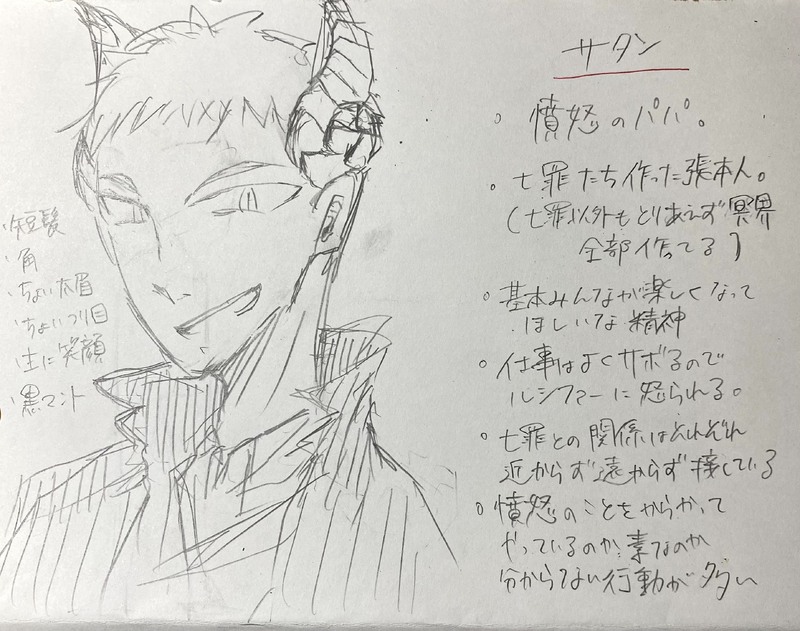 サタン
・憤怒のパパ。
・七罪たち作った張本人。
(七罪以外もとりあえず冥界
全部作ってる)
・基本みんなが楽しくなって
ほしいな精神
・仕事はよくサボるので
ルシファーに怒られる。
・七罪との関係はそれぞれ
近からず遠からず接している
・憤怒のことをからかって
やっているのか、素なのか
分からない行動が多い
・短髪
・角
・ちょい太眉
・ちょいつり目
・主に笑顔
・黒マント